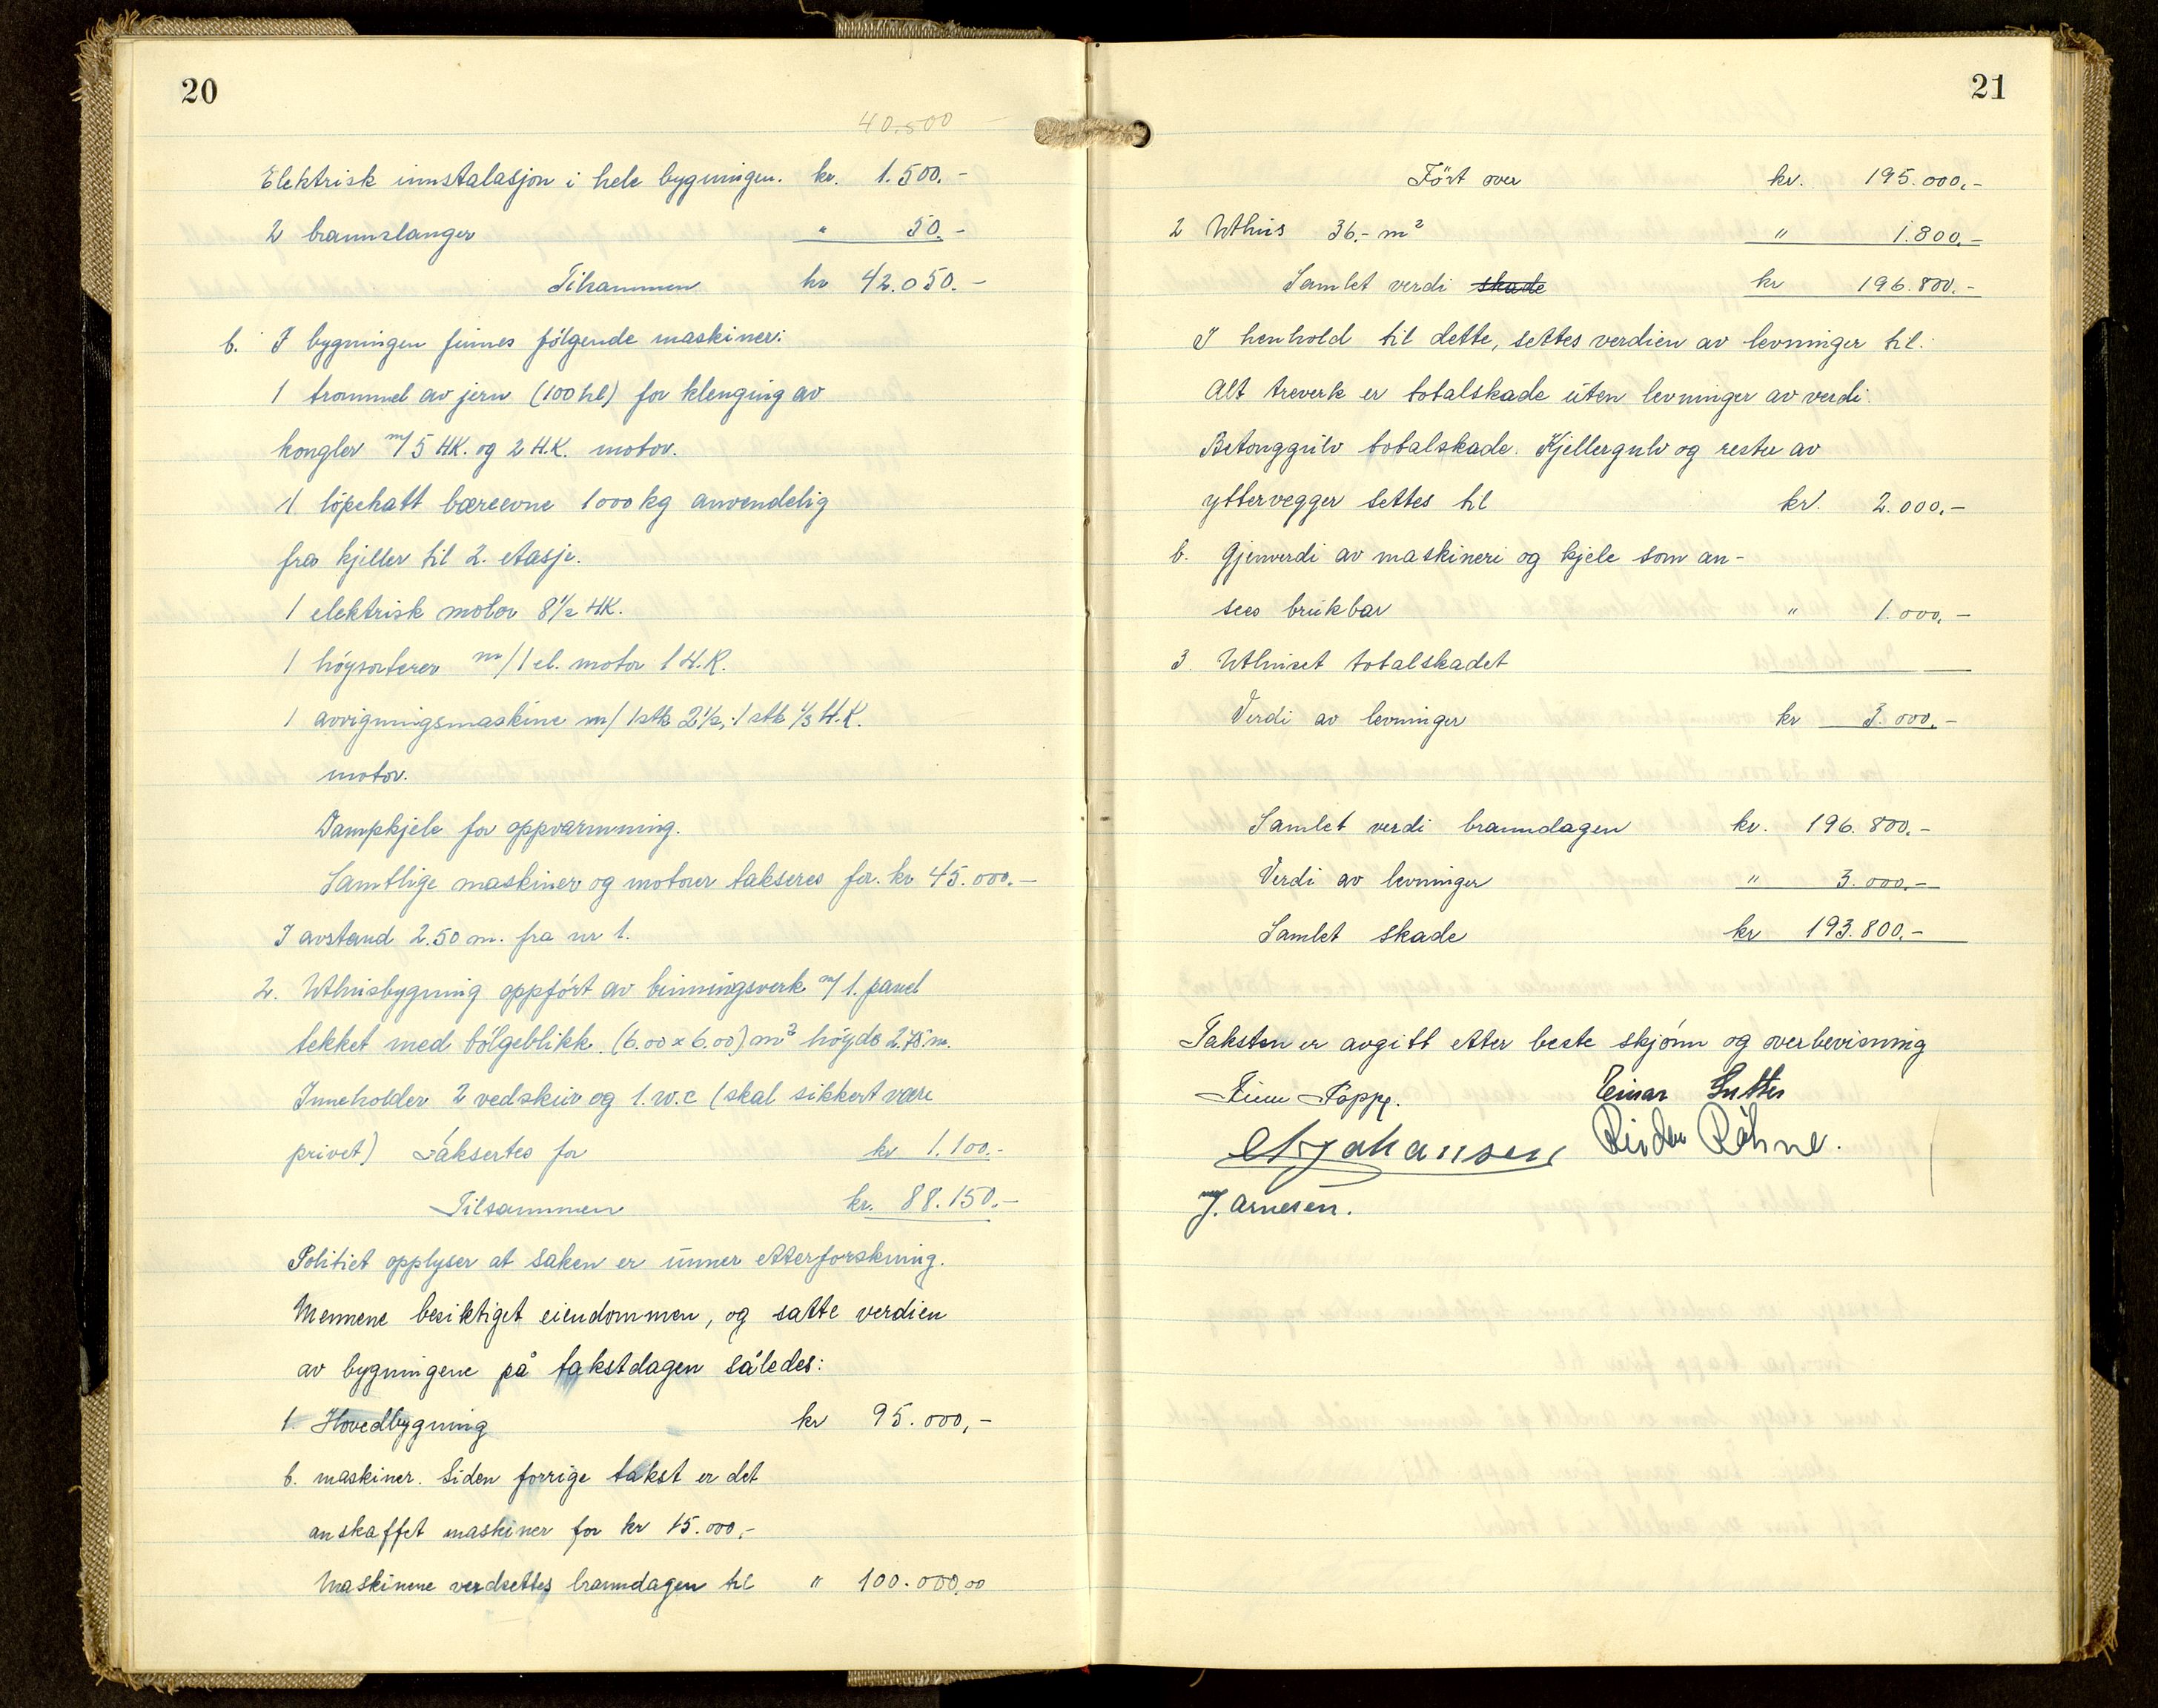 20
40.500
Elektrisk innstalasjon i hele bygningen. kr. 1.500.-
2 brannslanger " 50.-
Tilsammen kr 42.050.-
b. I bygningen finnes følgende maskiner:
1 trommel av jern (100 hl) for klenging av
kongler m/ 5 HK. og 2 H.K. motor.
1 löpekatt bæreevne 1000 kg anvendelig
fra kjeller til 2. etasje.
1 elektrisk motor 8 1/2 HK.
1 m/ 1 el. motor 1 H.K.
1 avvigningsmaskine m/ 1 stk 2 1/2, 1 stk 1/3 H.K.
motor.
Dampkjele for oppvarmning.
Samtlige maskiner og motorer takseres for. kr 45.000.-
I avstand 2.50 m. fra nr 1.
2. Uthusbygning oppfört av binningsverk m/ 1. panel
tekket med bölgeblikk. (6.00 x 6.00) m² höyde 2.75 m.
Inneholder 2 vedskur og 1. w.c (skal sikkert være
privet) Taksertes for kr 1.100.-
Tilsammen kr. 88.150.-
Politiet opplyser at saken er unner etterforskning.
Mennene besiktiget eiendommen, og satte verdien
av bygningene på takstdagen således:
1. Hovedbygning kr 95.000,-
b. maskiner. Siden forrige takst er det
anskaffet maskiner for kr 15.000,-
Maskinene verdsettes branndagen til " 100.000,00
21
Fört over kr. 195.000,-
2 Uthus 36.- m² " 1.800,-
Samlet verdi skade kr 196.800.-
I henhold til dette, settes verdien av levninger til:
Alt treverk er totalskade uten levninger av verdi.
Betonggulv totalskade. Kjellergulv og rester av
yttervegger settes til kr. 2.000,-
b. Gjenverdi av maskineri og kjele som an-
sees brukbar " 1.000,-
3. Uthuset totalskadet
Verdi av levninger kr 3.000,-
Samlet verdi branndagen kr. 196.800,-
Verdi av levninger " 3.000,-
Samlet skade kr 193.800,-
Taksten er avgitt etter beste skjönn og overbevisning
Finn Popp. Einar
Johansen Röhne.
J. Arnesen.